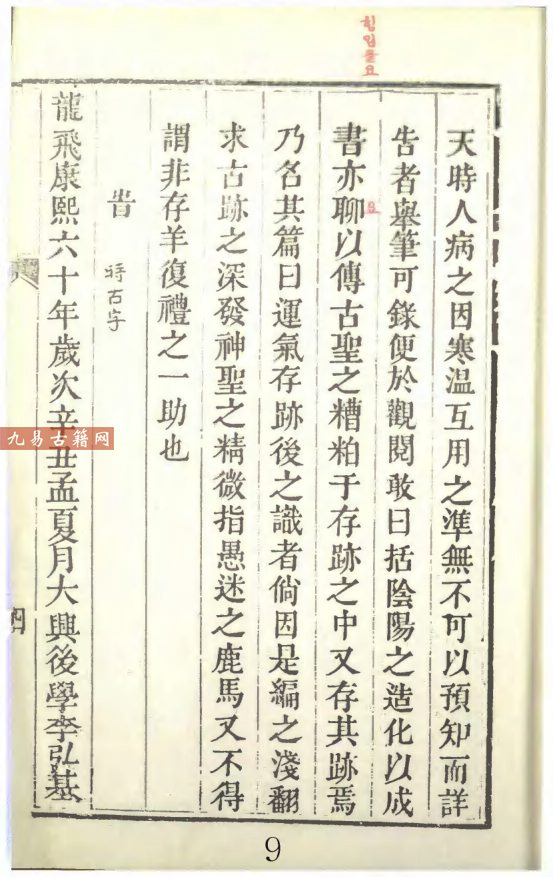 힘입을요
天時人病之因寒溫互用之準無不可以預知而詳
告者舉筆可錄便於觀閱敢曰括陰陽之造化以成
書亦聊以傳古聖之糟粕于存跡之中又存其跡焉
요
乃名其篇曰運氣存跡後之識者倘因是編之淺翻
求古跡之深發神聖之精微指愚迷之鹿馬又不得
謂非存羊復禮之一助也
旹 時古字
龍飛康熙六十年歲次辛丑孟夏月大興後學李弘基
四
九易古籍网
9